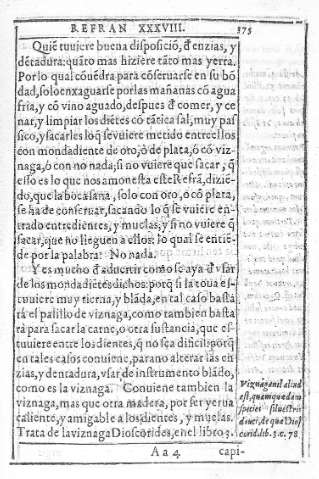 REFRAN XXXVIII.
375
Quiẽ tuuiere buena disposiciõ, đ enzias, y
dẽtadura: quãto mas hiziere tãto mas yerra.
Por lo qual cõuẽdra para cõseruarse en su bõ
dad, solo enxaguarse por las mañanas cõ agua
fria, y cõ vino aguado, despues đ comer, y ce
nar, y limpiar los diẽtes cõ tãtica sal, muy pas
sico, y sacarles loq̃ se vuiere metido entre ellos
con mondadiente de oro, ò de plata, ò cõ viz-
naga, ò con no nada; si no vuiere que sacar, q̃
esso es lo que nos amonesta este Refrã, diziẽ-
do, que la boca sana, solo con oro, ò cõ plata,
se ha de conseruar, sacando loq̃ se vuiere en-
trado entre dientes, y muelas; y si no vuiere q̃
sacar, que no lleguen a ellos: lo qual se entiẽ-
de por la palabra: No nada.
Y es mucho đ aduertir como se aya đ vsar
de los mondadiẽtes dichos: porq̃ si la toua es-
tuuiere muy tierna, y blãda, en tal caso basta
rà el palillo de viznaga, como tambien basta
rà para sacar la carne, o otra sustancia, que es-
tuuiere entre los dientes, q̃ no sea dificil: porq̃
en tales casos conuiene, para no alterar las en
zias, y dentadura, vsar de instrumento blãdo,
como es la viznaga. Conuiene tambien la
viznaga, mas que otra madera, por ser yerua
caliente, y amigable a los dientes, y muelas.
Trata de la viznaga Dioscorides, en el libro 3.
Viznaga nil aliud
est, quam quædam
species siluestris
dauci, de qua Dios
corid. lib. 3. c. 78
Aa 4
capi-